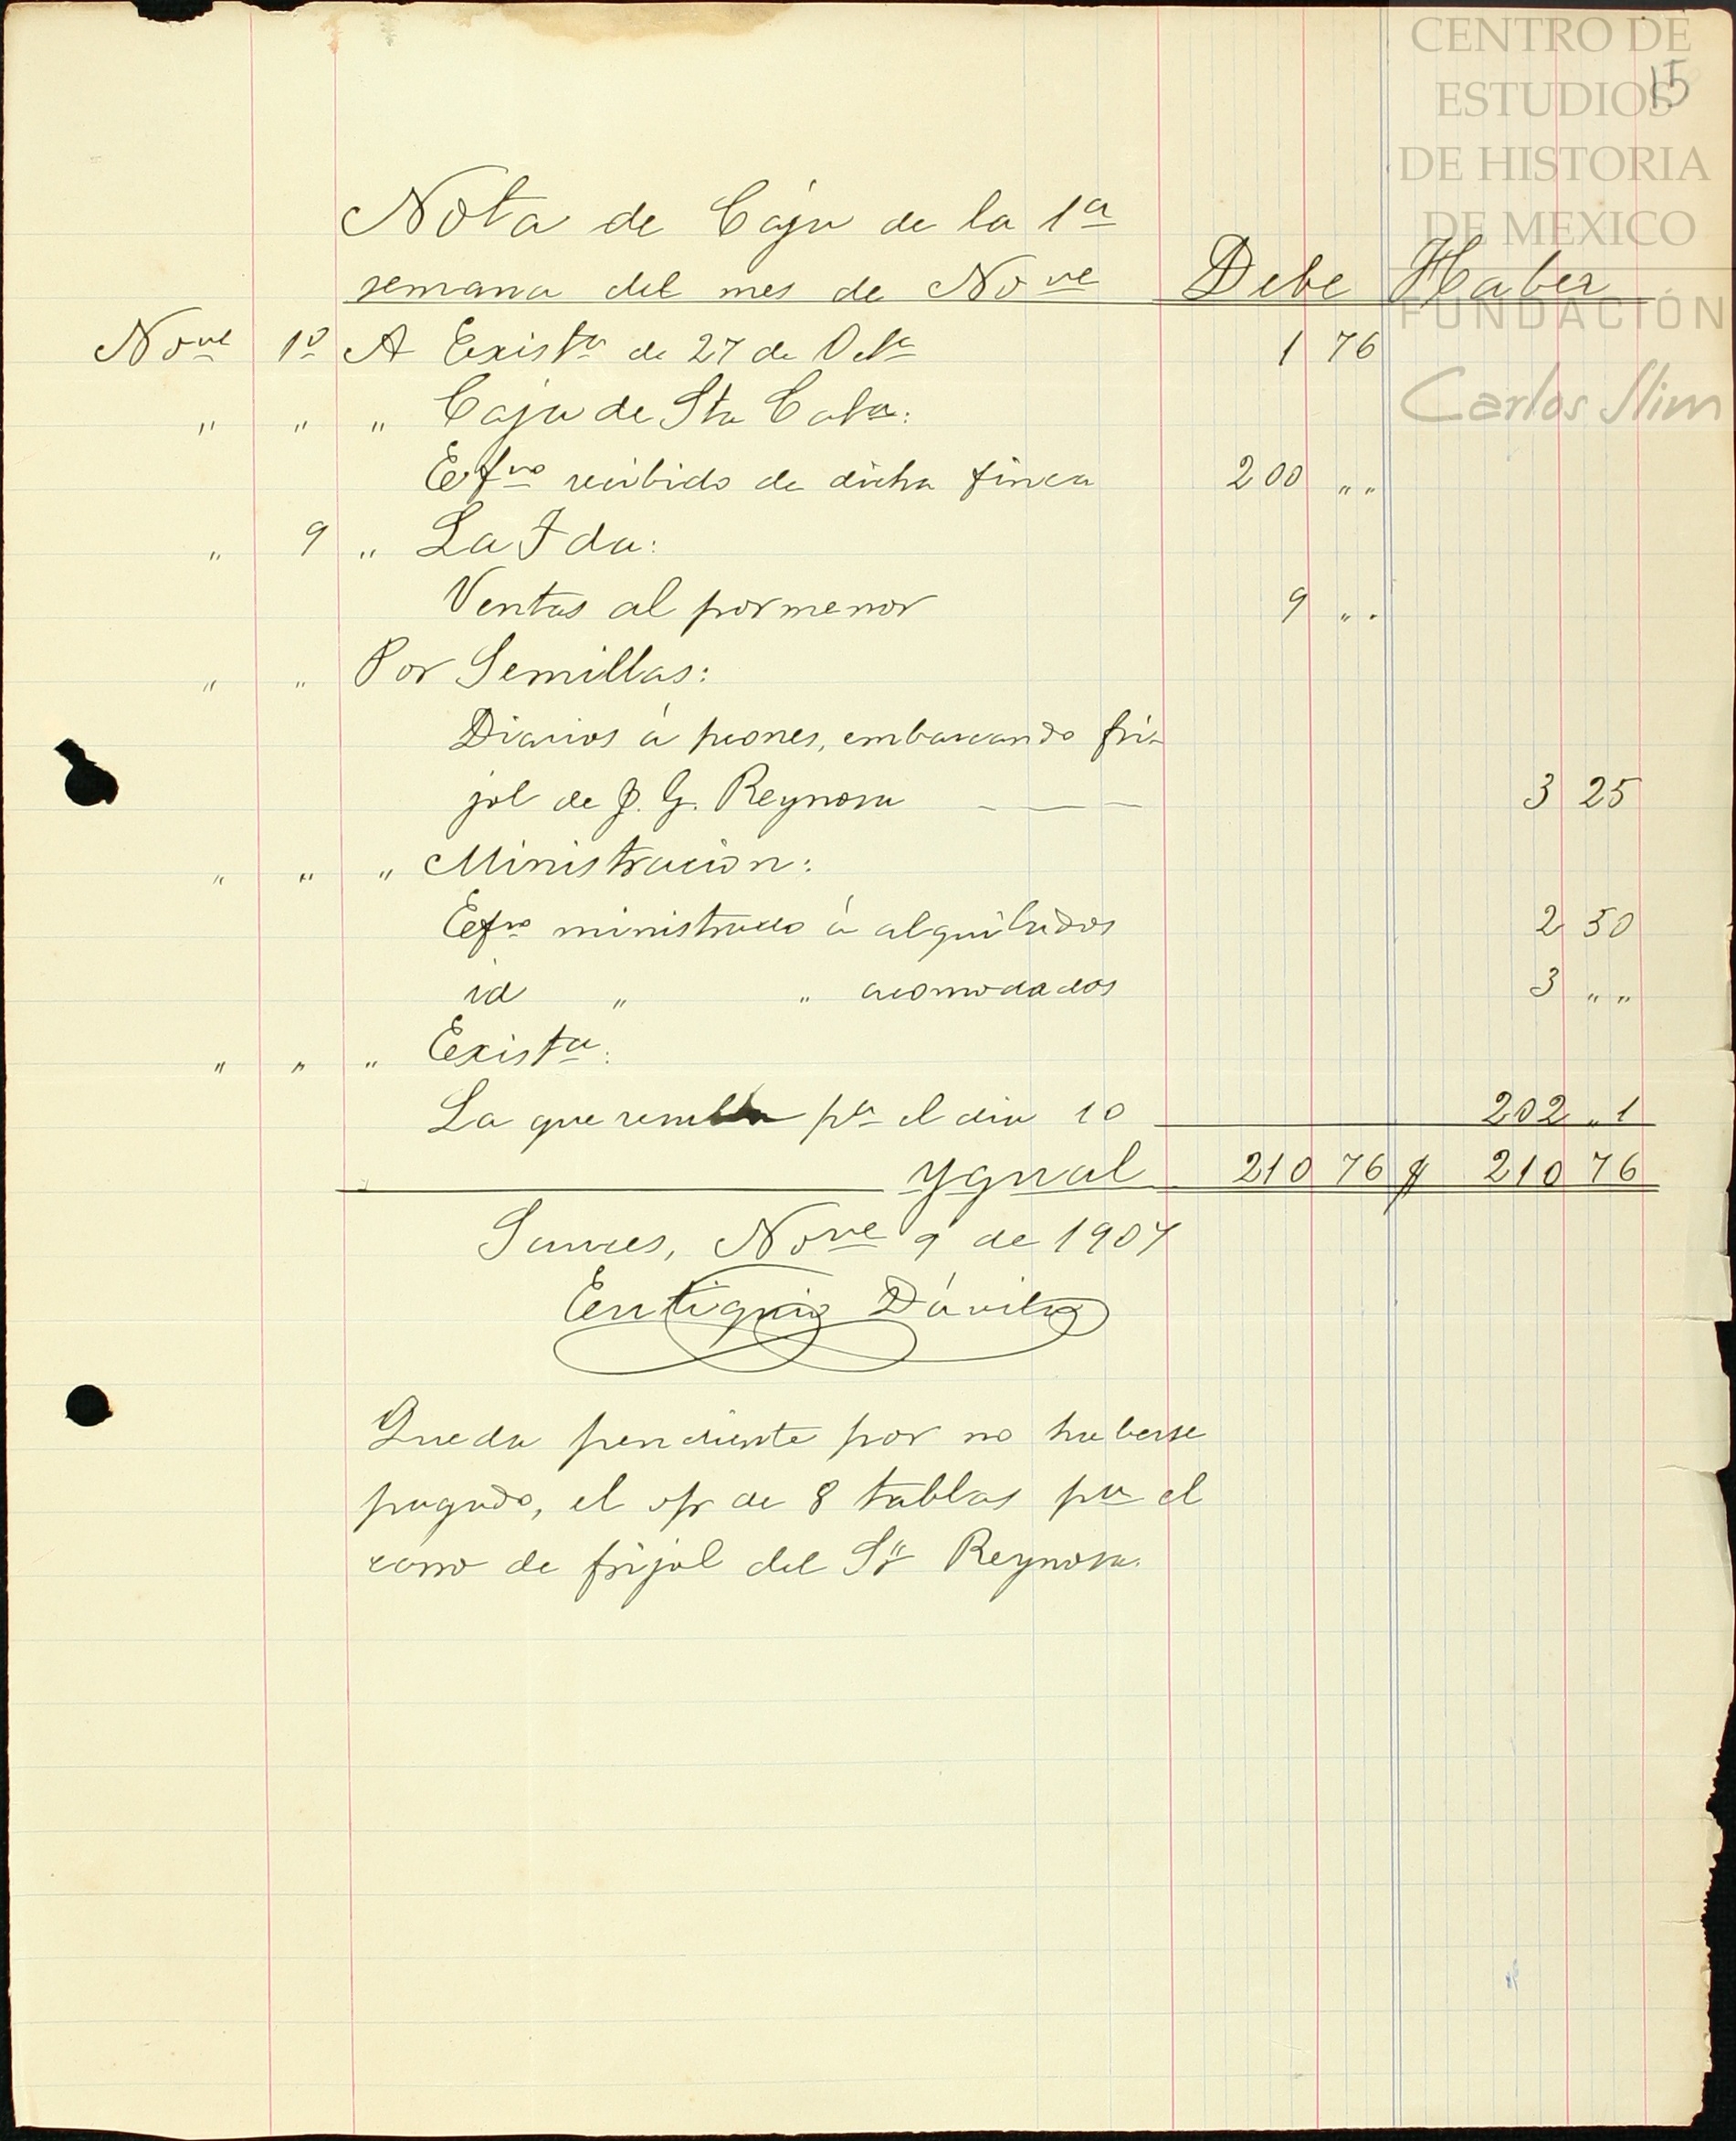 CENTRO DE
ESTUDIOS
DE HISTORIA
DE MEXICO
FUNDACIÓN
Carlos Slim
15
Nota de Caja de la 1ª
semana del mes de Nove Debe Haber
Nove 1º A Existª de 27 de Octe 1 76
" " " Caja de Sta Cata:
Eftvo recibido de dicha finca 200 " "
" 9 " La Tda:
Ventas al pormenor 9 " "
" " Por Semillas:
Diarios á peones, embarcando fri-
jol de J. G. Reynosa — — — 3 25
" " " Ministracion:
Eftvo ministrado á alquilados 2 50
id " " acomodados 3 " "
" " " Existª:
La que pª el dia 10 202 " 1
Ygual 210 76 $ 210 76
Sauces, Nove 9 de 1907
Eutiquio Dávila
Queda pendiente por no haberse
pagado, el de 8 tablas pa el
carro de frijol del Sr Reynosa.